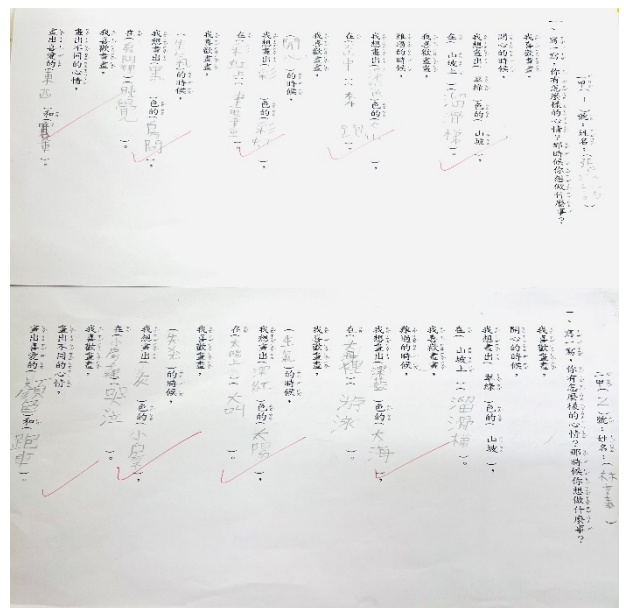 二甲( )號:姓名:(張 )
一、寫一寫,你有怎麼樣的心情?那時候你想做什麼事?
我喜歡畫畫,
開心的時候,
我想畫出(翠綠)色的(山坡),
在(山坡上)(溜滑梯)。
我喜歡畫畫,
難過的時候,
我想畫出( 色)色的(山),
在(山中)( )。
我喜歡畫畫,
( )的時候,
我想畫出(彩)色的(彩虹),
在(彩虹上)( )。
我喜歡畫畫,
(生氣)的時候,
我想畫出(黑)色的(房間),
在(房間裡)(睡覺)。
我喜歡畫畫,
畫出不同的心情,
畫出喜愛的(東西)和(賽車)。
二甲(2)號:姓名:(林 )
一、寫一寫,你有怎麼樣的心情?那時候你想做什麼事?
我喜歡畫畫,
開心的時候,
我想畫出(翠綠)色的(山坡),
在(山坡上)(溜滑梯)。
我喜歡畫畫,
難過的時候,
我想畫出(深藍)色的(大海),
在(大海裡)(游泳)。
我喜歡畫畫,
(生氣)的時候,
我想畫出(深紅)色的(太陽),
在(太陽上)(大叫)。
我喜歡畫畫,
( )的時候,
我想畫出(灰)色的(小房子),
在(小房子裡)(哭泣)。
我喜歡畫畫,
畫出不同的心情,
畫出喜愛的(顏色)和(跑車)。